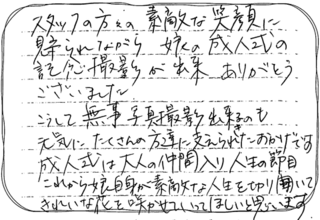 スタッフの方々の素敵な笑顔に
見守られながら 娘の成人式の
記念撮影が出来 ありがとう
ございました
こうして無事写真撮影出来るのも
元気にたくさんの方達に支えられたおかげです
成人式は大人の仲間入り人生の節目
これから娘自身が素敵な人生を切り開いて
きれいな花を咲かせていってほしいと思います